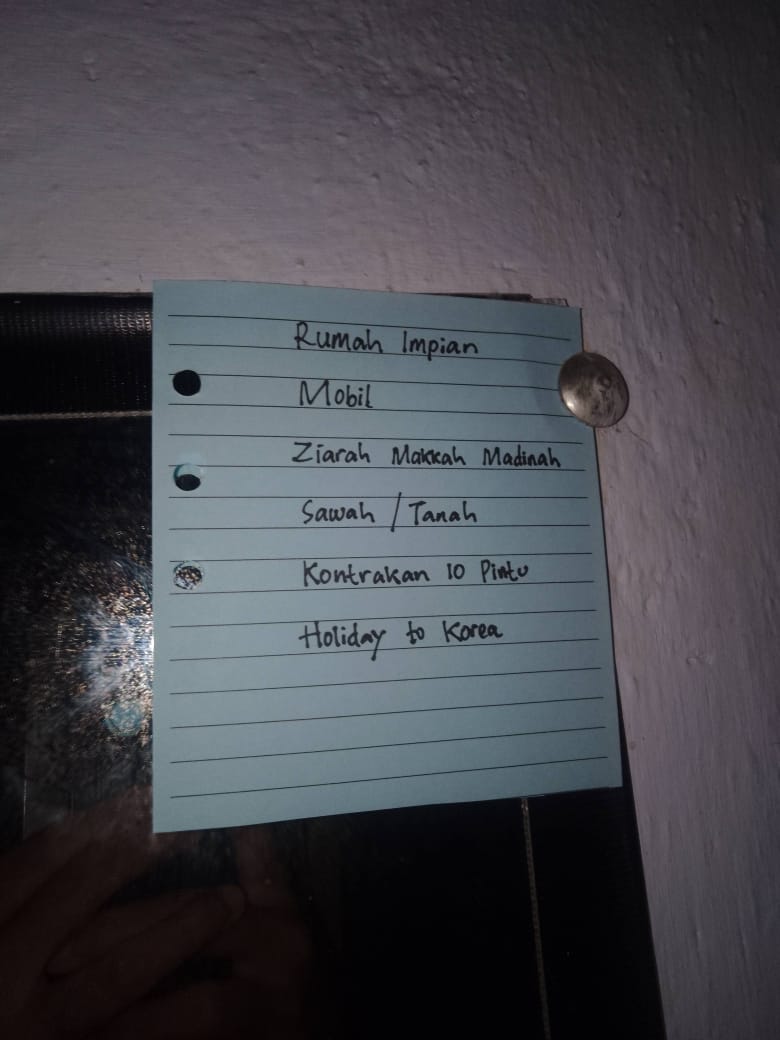 Rumah Impian
Mobil
Ziarah Makkah Madinah
Sawah / Tanah
Kontrakan 10 Pintu
Holiday to Korea